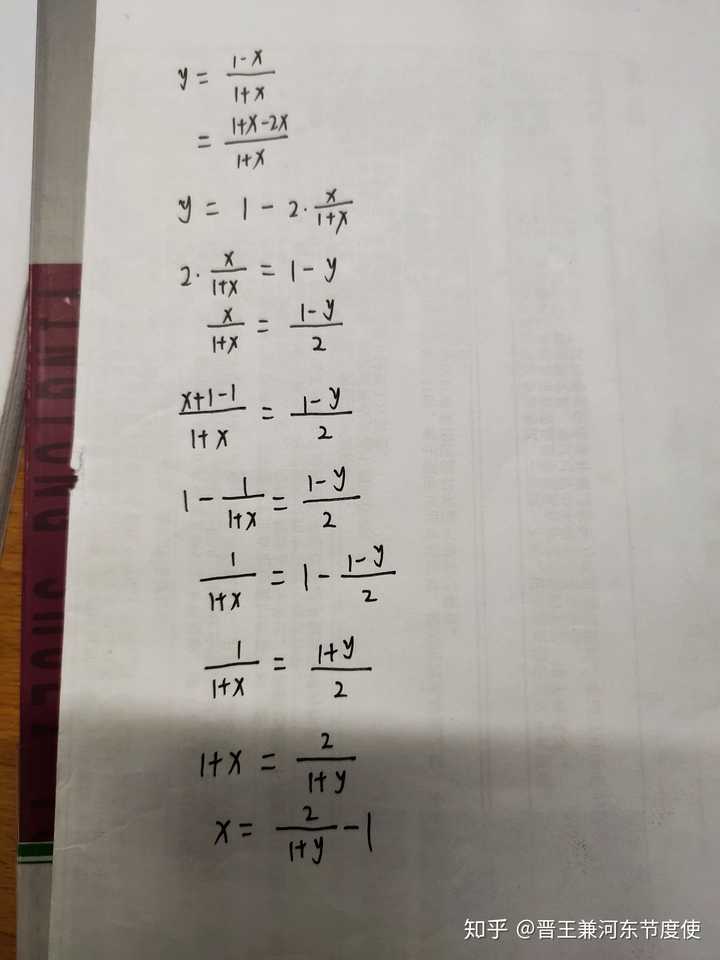 y = \frac{1-x}{1+x}
= \frac{1+x-2x}{1+x}
y = 1 - 2 \cdot \frac{x}{1+x}
2 \cdot \frac{x}{1+x} = 1 - y
\frac{x}{1+x} = \frac{1-y}{2}
\frac{x+1-1}{1+x} = \frac{1-y}{2}
1 - \frac{1}{1+x} = \frac{1-y}{2}
\frac{1}{1+x} = 1 - \frac{1-y}{2}
\frac{1}{1+x} = \frac{1+y}{2}
1+x = \frac{2}{1+y}
x = \frac{2}{1+y} - 1
知乎 @晋王兼河东节度使